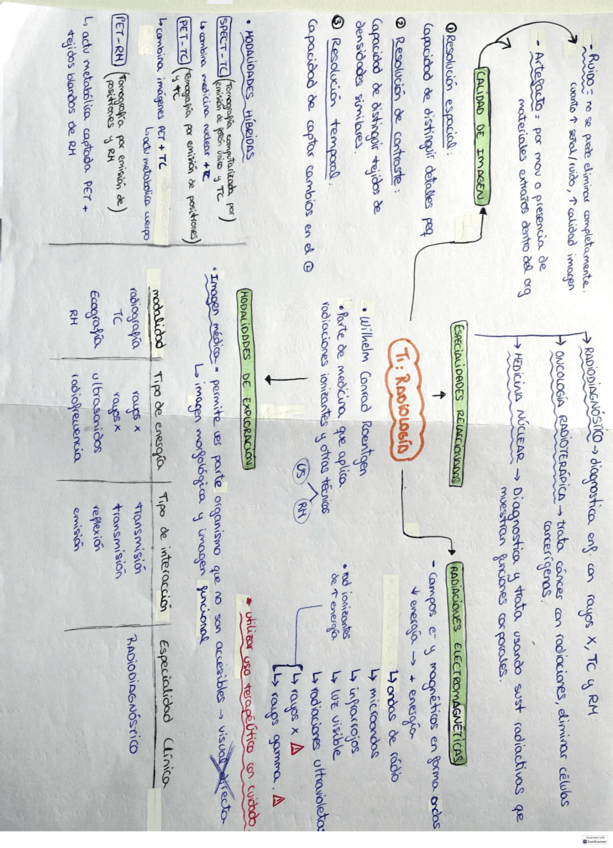 T1: RADIOLOGÍA
• Wilhelm Conrad Roentgen
• Parte de medicina que aplica
radiaciones ionizantes y otras técnicas
US
RH
CALIDAD DE IMAGEN
- Ruido = no se puede eliminar completamente.
cuanto ↑ señal/ruido, ↑ calidad imagen
- Artefacto = por mov o presencia de
materiales extraños dentro del org
① Resolución espacial:
capacidad de distinguir detalles peq
② Resolución de contraste:
Capacidad de distinguir tejidos de
densidades similares.
③ Resolución temporal:
Capacidad de captar cambios en el
ESPECIALIDADES RELACIONADAS
→ RADIODIAGNÓSTICO → diagnostica enf. con rayos X, TC y RM
→ ONCOLOGÍA RADIOTERÁPICA → trata cáncer con radiaciones, eliminar células
cancerígenas.
→ MEDICINA NUCLEAR → Diagnostica y trata usando sust radiactivas que
muestran funciones corporales.
RADIACIONES ELECTROMAGNÉTICAS
- campos e- y magnéticos en forma ondas
↓ energía → + energía
↳ ondas de radio
↳ microondas
↳ infrarrojos
↳ luz visible
↳ radiaciones ultravioletas
↳ rayos x ⚠
↳ rayos gamma. ⚠
• Rad ionizantes
de ↑ energía
* utilizar uso terapéutico con cuidado
MODALIDADES DE EXPLORACIÓN
• Imagen médica = permite ver parte organismo que no son accesibles → visual directa
↳ imagen morfológica y imagen funcional
modalidad Tipo de energía Tipo de interacción Especialidad Clínica
radiografía rayos x transmisión RADIODIAGNÓSTICO
TC rayos x transmisión
Ecografía ultrasonidos reflexión
RH radiofrecuencia emisión
• MODALIDADES HÍBRIDAS
SPECT-TC (Tomografía computarizada por
emisión de fotón único y TC)
↳ combina medicina nuclear + TC
PET-TC (Tomografía por emisión de positrones
y TC)
↳ combina imágenes PET + TC
↳ actv metabólica cuerpo
PET-RH (Tomografía por emisión de
positrones y RH)
↳ actv metabólica captada PET +
tejidos blandos de RH
CamScanner